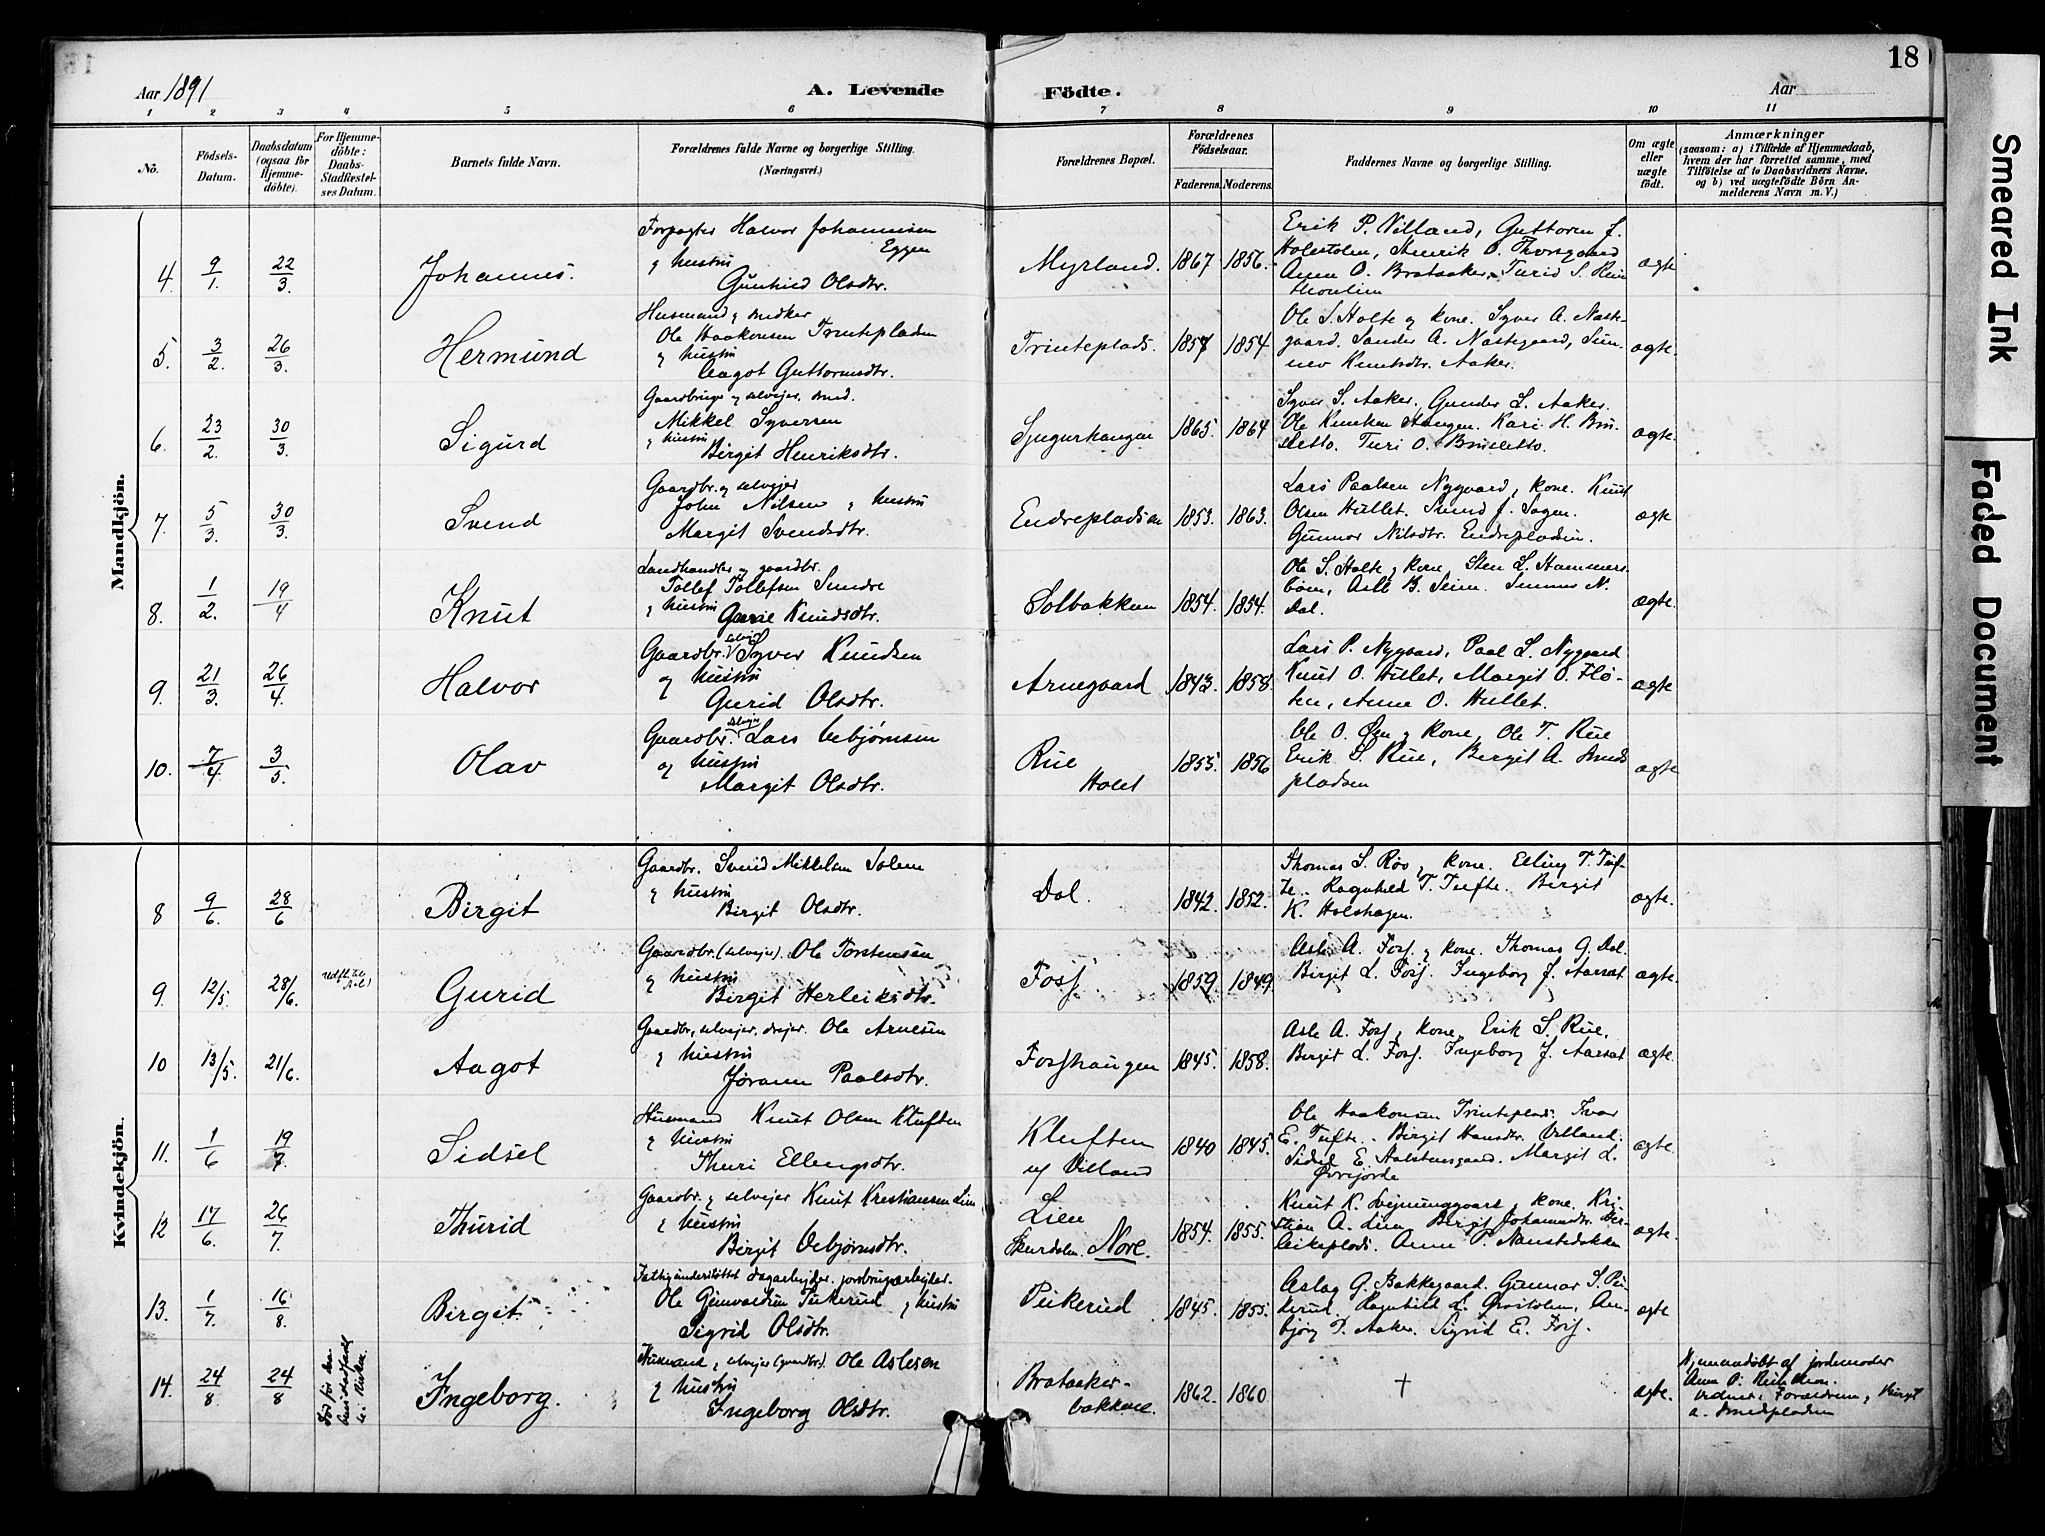 18
Aar 1891
A. Levende Födte.
Aar
1 2 3 4 5 6 7 8 9 10 11
No.
Födsels-Datum.
Daabsdatum (ogsaa for Hjemmedöbte).
For Hjemmedöbte: Daabs-Stadfæstelses Datum.
Barnets fulde Navn.
Forældrenes fulde Navne og borgerlige Stilling. (Næringsvei.)
Forældrenes Bopæl.
Forældrenes Födselsaar.
Faderens. Moderens.
Faddernes Navne og borgerlige Stilling.
Om ægte eller uægte födt.
Anmærkninger
(saasom: a) i Tilfælde af Hjemmedaab, hvem der har forrettet samme, med Tilföielse af to Daabsvidners Navne, og b) ved uægtefödte Börn Anmelderens Navn m. V.)
Mandkjön.
4. 9/1. 22/3. Johannes. Forpagter Halvor Johannesen Eggen
& hustru Gunhild Olsdtr. Myrland. 1867 1856. Erik P. Villand, Guttorm J.
Holestolen, Henrik O. Thorsgaard
Anne O. Brataaker, Turid S.
ægte
5. 3/2. 26/3. Hermund Husmand & snedker
Ole Haakonsen Trintepladsen
& hustru Aagot Guttormsdtr. Trinteplads. 1857 1854 Ole S. Holte & kone. Syver A. Næste-
gaard. Sander A. Næstegaard, Sun-
nev Knutsdtr. Aaker.
ægte.
6. 23/2. 30/3. Sigurd Gaardbruger & selvejer, smed.
Mikkel Syversen
& hustru Birgit Henriksdtr. Sjugurhaugen 1865. 1864 Syver S. Aaker. Gunder L. Aaker.
Ole Knutsen Haugen. Kari H. Bru-
sletto. Turi O. Brusletto.
ægte.
7. 5/3. 30/3. Svend Gaardbr. & selvejer
John Nilsen & hustru
Margit Svendsdtr. Endrepladsen 1853. 1863. Lars Paalsen Nygaard & kone. Knut
Olsen Hullet. Svend J. Sagen.
Gunnor Nilsdtr. Endrepladsen.
ægte
8. 1/2. 19/4 Knut Landhandler & gaardbr.
Tollef Tollefsen Sundre
& hustru Guri Knudsdtr. Solbakken 1854. 1854. Ole S. Holte & kone, Sten L. Hammers-
bøen, Asle B. Seim. Sunnev N.
Dal.
ægte.
9. 21/3. 26/4. Halvor Gaardbr. selvejer Syver Knudsen
og hustru
Gurid Olsdtr. Arnegaard 1843. 1858. Lars P. Nygaard, Paal L. Nygaard
Knut O. Hullet, Margit O. Flø-
ten, Anne O. Hullet.
ægte
10. 7/4 3/5. Olav Gaardbr. selvejer Lars Vebjørnsen
og hustru
Margit Olsdtr. Rue
Holet 1855. 1856 Ole O. Øen & kone, Ole T. Rue
Erik S. Rue, Birgit A. Smeds-
pladsen
ægte
Kvindekjön.
8 9/6. 28/6 Birgit Gaardbr. Svend Mikkelsen Solem
& hustru
Birgit Olsdtr. Dal. 1842. 1852. Thomas S. Røo & kone. Elling T. Tuf-
te. Ragnhild T. Tufte. Birgit
K. Holshagen.
ægte.
9. 12/5. 28/6. Gurid Gaardbr. (selvejer). Ole Torstensen
& hustru
Birgit Herleiksdtr. Foss 1859. 1849. Asle A. Foss & kone. Thomas G. Dal.
Birgit L. Foss. Ingeborg J. Aarsat
ægte.
10 13/5. 21/6. Aagot Gaardbr., selvejer, drejer. Ole Arnesen
& hustru
Jørann Paalsdtr. Fosshaugen 1845. 1858. Asle A. Foss & kone, Erik S. Rue,
Birgit L. Foss. Ingeborg J. Aarsat
ægte.
11. 1/6 19/7. Sidsel Husmand Knut Olsen Kluften
& hustru
Thuri Ellingsdtr. Kluften
u/ Villand 1840 1845. Ole Haakonsen Trinteplads. Ivar
E. Tufte. Birgit Hansdtr. Villand.
Sidsel E. Halstensgaard. Margit L.
Øvrejorde
ægte
12 17/6. 26/7. Thurid Gaardbr. & selvejer Knut Kristiansen Lien
& hustru
Birgit Vebjørnsdtr. Lien
Skurdalen. Nore. 1854. 1855. Knut K. & kone. Kri-
stian A. Lien. Birgit Johannesdtr. Her-
leiksplads. Anne P.
ægte.
13. 1/7. 16/8. Birgit. Fattigunderstøttet dagarbejder. jordbrugsarbejder.
Ole Gjenvordsen Pukerud & hustru
Sigrid Olsdtr. Pukerud 1845. 1855. Aslag G. Bakkegaard. Gunnar S. Pu-
kerud. Ragnhild L. Am-
bjørg P. Aaker. Sigrid E. Foss.
ægte
14. 24/8. 24/8 Ingeborg. Husmand & selvejer (gaardbr.). Ole Aslesen
& hustru
Ingeborg Olsdtr. Brataaker-
bakken. 1862. 1860 † ægte. Hjemmedøbt af jordemoder
Anne P.
vidner: Forældrene & Birgit
A. Smedpladsen
Smeared Ink
Faded Document